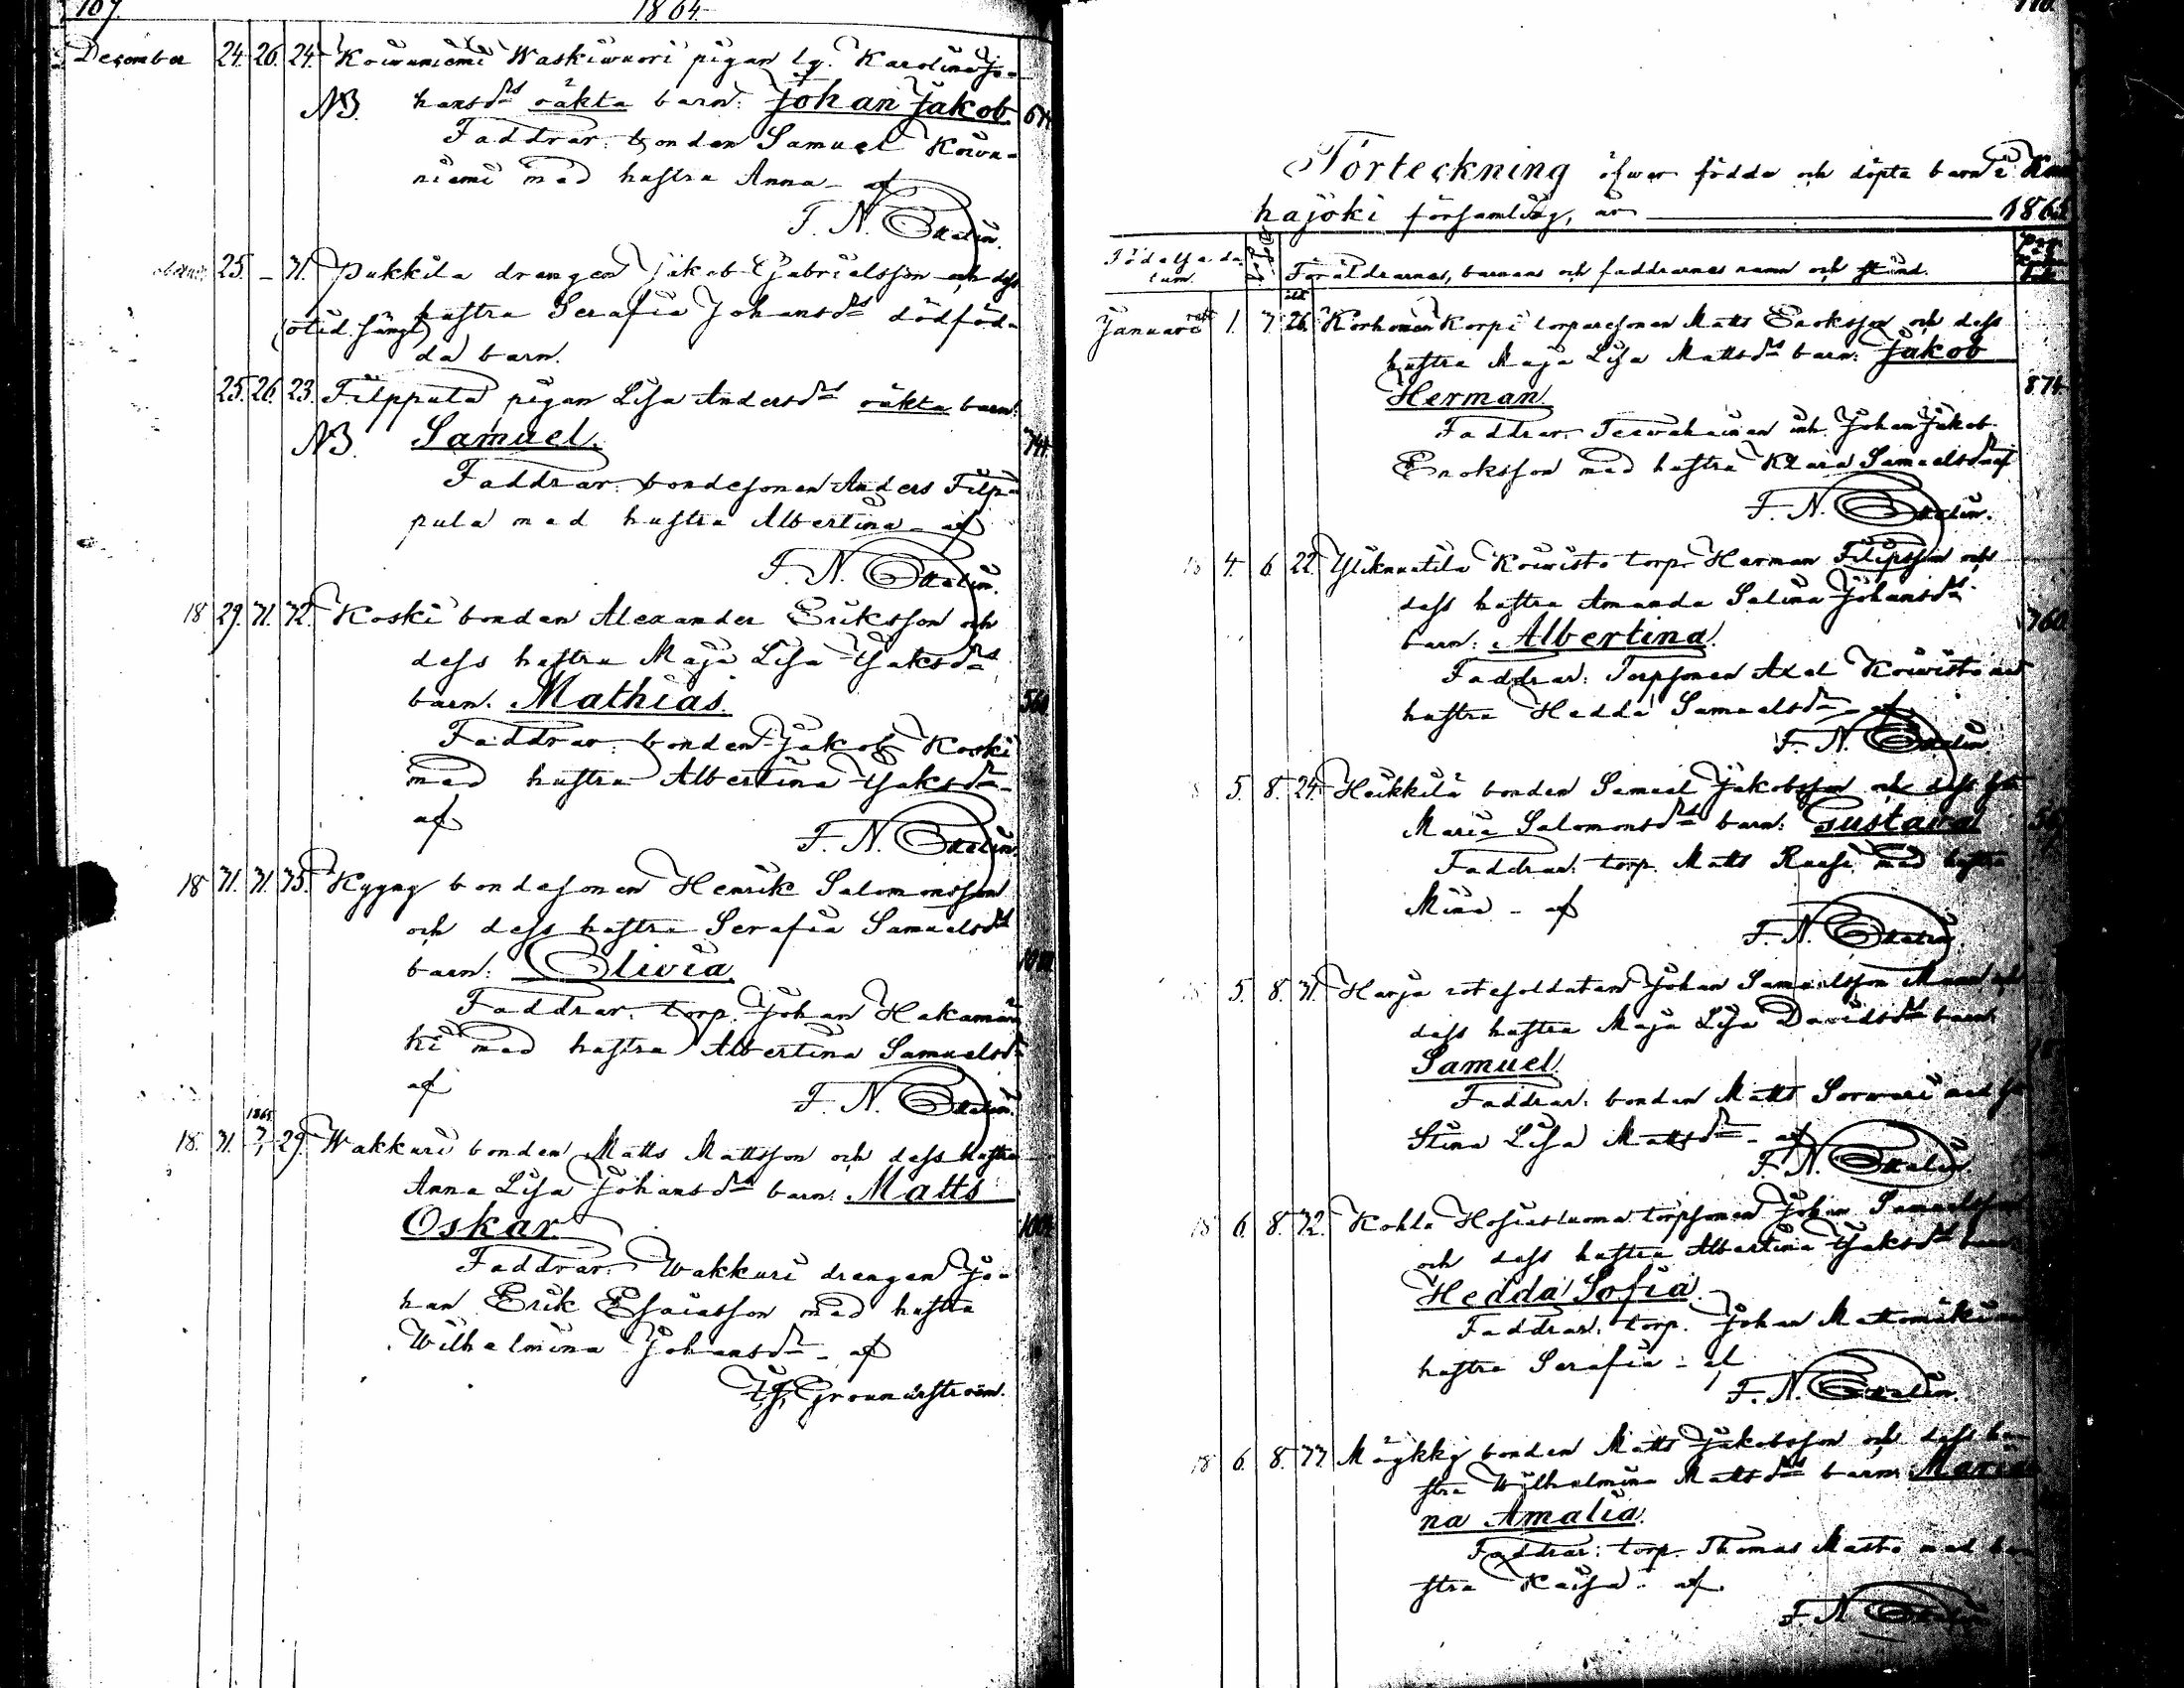 109.
1864.
December 24. 26. 24. Koivuniemi Waskiwuori pigan lg. Karolina Jo-
NB. hansdr oäkta barn: Johan Jakob.
Faddrar: bonden Samuel Koivu-
niemi med hustru Anna - af
F. N.
25. - 31. Pukkila drengen Jakob Gabrielsson och dess
hustru Serafia Johansdr dödföd-
da barn.
25. 26. 23. Filppula pigan Lisa Andersdr oäkta barn:
NB. Samuel.
Faddrar: bondesonen Anders Filp-
pula med hustru Albertina - af
F. N.
18. 29. 31. 32. Koski bonden Alexander Eriksson och
dess hustru Maja Lisa Isaksdr
barn: Mathias.
Faddrar: bonden Jakob Koski
med hustru Albertina Isaksdr -
af
F. N.
18 31. 31. 35. Kyyny bondesonen Henrik Salomonsson
och dess hustru Serafia Samuelsdr
barn: Olivia.
Faddrar: torp. Johan Hakamäu
ki med hustru Albertina Samuelsdr
af
F. N.
1865
18. 31. 29. Wakkuri bonden Matts Mattsson och dess hustru
Anna Lisa Johansdr barn: Matts
Oskar.
Faddrar: Wakkuri drengen Jo-
han Erik Esaiasson med hustru
Wilhelmina Johansdr - af
Grounérström.
Förteckning öfwer födda och döpta barn i
hajoki församling, år 1865
Födelse da-
tum. Föräldrarnes, barnens och faddrarnes namn och stånd.
Januari 1. 7. 26. Korhonen Korpi torparesonen Matts Enoksson och dess
hustru Maja Lisa Mattsdr barn: Jakob
Herman. 874.
Faddrar: inh. Johan Jakob
Enoksson med hustru Klara Samuelsdr af
F. N.
4. 6. 22. Yliknuutila Koiwisto torp. Herman Filipsson och
dess hustru Amanda Salina Johansdr
barn: Albertina. 760
Faddrar: Torpsonen Axel Koiwisto
hustru Hedda Samuelsdr - af
F. N.
5. 8. 24. Heikkilä bonden Samuel Jakobsson och dess
Maria Salomonsdr barn: Gustava
Faddrar: torp. Matts med hustru
Mina - af
F. N.
5. 8. 31. Harja rotesoldaten Johan Samuelsson
dess hustru Maja Lisa Davidsdr barn:
Samuel.
Faddrar: bonden Matts Sorwari med
Stina Lisa Mattsdr - af
F. N.
18 6. 8. 32. Kohla torpsonen Johan Samuelsson
och dess hustru Albertina Isaksdr barn
Hedda Sofia.
Faddrar: torp. Johan
hustru Serafia - af
F. N.
18 6. 8. 33. Mäykky bonden Matts Jakobsson och dess hu-
stru Wilhelmina Mattsdr barn: Maria
na Amalia.
Faddrar: torp. Thomas med hu
stru Kaisa - af
F. N.